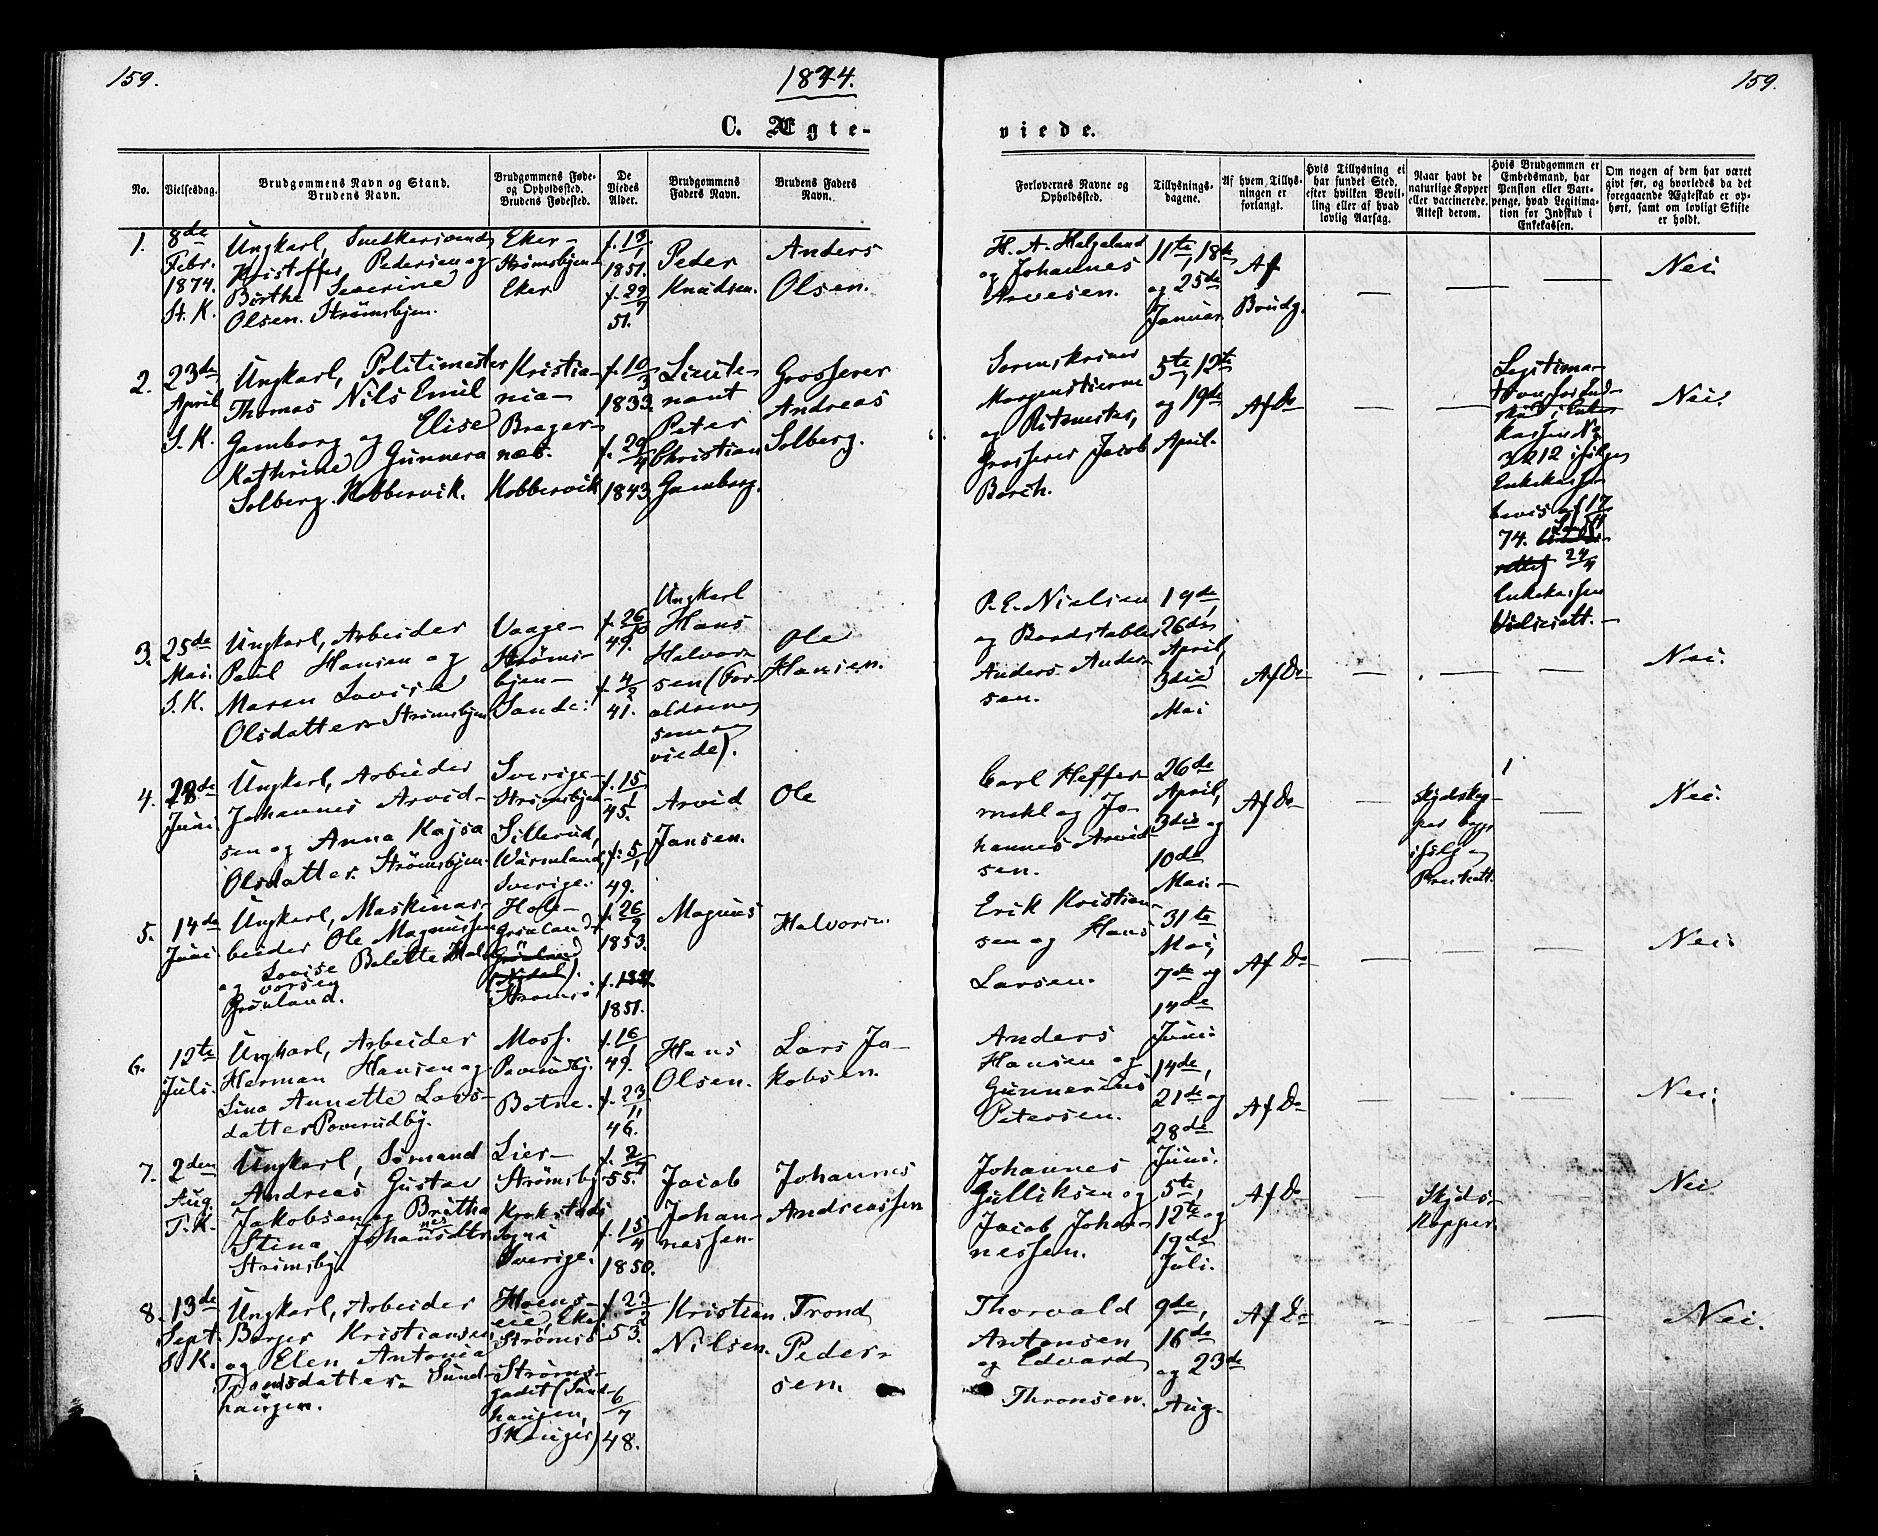 159.
1874.
159.
C. Ægte-
viede.
No.
Vielsesdag.
Brudgommens Navn og Stand.
Brudens Navn.
Brudgommens Føde-
og Opholdssted.
Brudens Fødested.
De
Viedes
Alder.
Brudgommens
Faders Navn.
Brudens Faders
Navn.
Forlovernes Navne og
Opholdssted.
Tillysnings-
dagene.
Af hvem Tillys-
ningen er
forlangt.
Hvis Tillysning ei
har fundet Sted,
efter hvilken Bevil-
ling eller af hvad
lovlig Aarsag.
Naar havt de
naturlige Kopper
eller vaccinerede.
Attest derom.
Hvis Brudgommen er
Embedsmand, har
Pension eller Vart-
penge, hvad Legitima-
tion for Indskud i
Enkekassen.
Om nogen af dem har været
givt før, og hvorledes da det
foregaaende Ægteskab er op-
hørt, samt om lovligt Skifte
er holdt.
1.
8de
Febr.
1874.
St. K.
Ungkarl, Snedkersvend
Kristoffer Pedersen og
Birthe Severine
Olsen. Strømsbyen.
Eker-
Strømsbyen-
Eker
f. 13/1
1851.
f. 29/7
51.
Peder
Knudsen.
Anders
Olsen.
H. A. Helgeland
og Johannes
Arvesen.
11te, 18de
og 25de
Januar
Af
Brudg.
—
—
—
Nei.
2.
23de
April
S. K.
Ungkarl, Politimester
Thomas Nils Emil
Gamborg og Elise
Kathrine Gunnera
Solberg. Kobbervik.
Kristia-
nia-
Brager-
næs.
Kobbervik
f. 10/3
1833.
f. 29/4
1843
Lieute-
nant
Peter
Christian
Gamborg.
Grosserer
Andreas
Solberg.
Sorenskriver
Morgenstierne
og Ritmester,
Grosserer Jacob
Borch.
5te, 12te
og 19de
April.
Af Do
—
—
Legitima-
tion for Ind-
skud i Enke
kassen No
3212 ifølge
Enkekasse
bevis af 17/4
74.
24/4
Enkekassen
Nei.
3.
25de
Mai.
S. K.
Ungkarl, Arbeider
Paul Hansen og
Maren Lovise
Olsdatter Strømsbyen
Vaage-
Strøms-
byen-
Sande.
f. 26/10
49.
f. 4/2
41.
Ungkarl
Hans
Halvor-
sen (For-
ældrene
senere
viede).
Ole
Hansen.
P. E. Nielsen
og Baadstabler
Anders Ander-
sen.
19de,
26de
April,
3die
Mai
Af Do
—
—
—
Nei.
4.
28de
Juni
Ungkarl, Arbeider
Johannes Arvid-
sen og Anna Kajsa
Olsdatter. Strømsbyen.
Sverige-
Strømsbyen
Sillerud,
Wärmland,
Sverige.
f. 15/1
45.
f. 5/1
49.
Arvid
Jansen.
Ole
Carl Heffer-
mehl og Jo-
hannes Arvid-
sen.
26de
April,
3die og
10de
Mai-
Af Do
—
Skydskop-
per
ifølge
—
Nei.
5.
14de
Juni
Ungkarl, Maskinar-
beider Ole Magnussen
og Lovise Belette Hal-
vorsen
Grønland.
Hole-
Grønland
Strømsø
f. 26/9
1853.
f.
1851.
Magnus
Halvorsen.
Erik Kristian-
sen og Hans
Larsen.
31te
Mai,
7de og
14de
Juni
Af Do
—
—
—
Nei.
6.
12te
Juli.
Ungkarl, Arbeider
Herman Hansen og
Lina Annette Lars-
datter Poverudby.
Moss.
Poverudby.
Botne.
f. 16/1
49.
f. 23/11
46.
Hans
Olsen.
Lars Ja-
kobsen.
Anders
Hansen og
Gunnerius
Petersen.
14de,
21de og
28de
Juni.
Af Do
—
—
—
Nei.
7.
2den
Aug.
T. K.
Ungkarl, Sømand
Andreas Gustav
Jakobsen og Britha
Stina Johannesdtr
Strømsby.
Lier-
Strømsby
Krokstads
Sogn i
Sverige.
f. 2/7
55.
f. 15/4
1850.
Jacob
Johan-
nessen.
Johannes
Andreassen
Johannes
Gulliksen og
Jacob Johan-
nessen.
5te,
12te og
19de
Juli.
Af Do
—
Skyds-
Kopper.
—
Nei
8.
13de
Sept.
S. K.
Ungkarl, Arbeider
Borger Kristiansen
og Elen Antonia
Trondsdatter Sund-
haugen.
Hoens-
eie, Eker
Strømsø-
Strøms-
godset (Sund-
haugen,
Skauger)
f. 22/2
53.
6/7
48.
Kristian
Nilsen.
Trond
Peder-
sen.
Thorvald
Antonsen
og Edvard
Thronsen.
9de,
16de
og 23de
Aug.
Af Do
—
—
—
Nei.